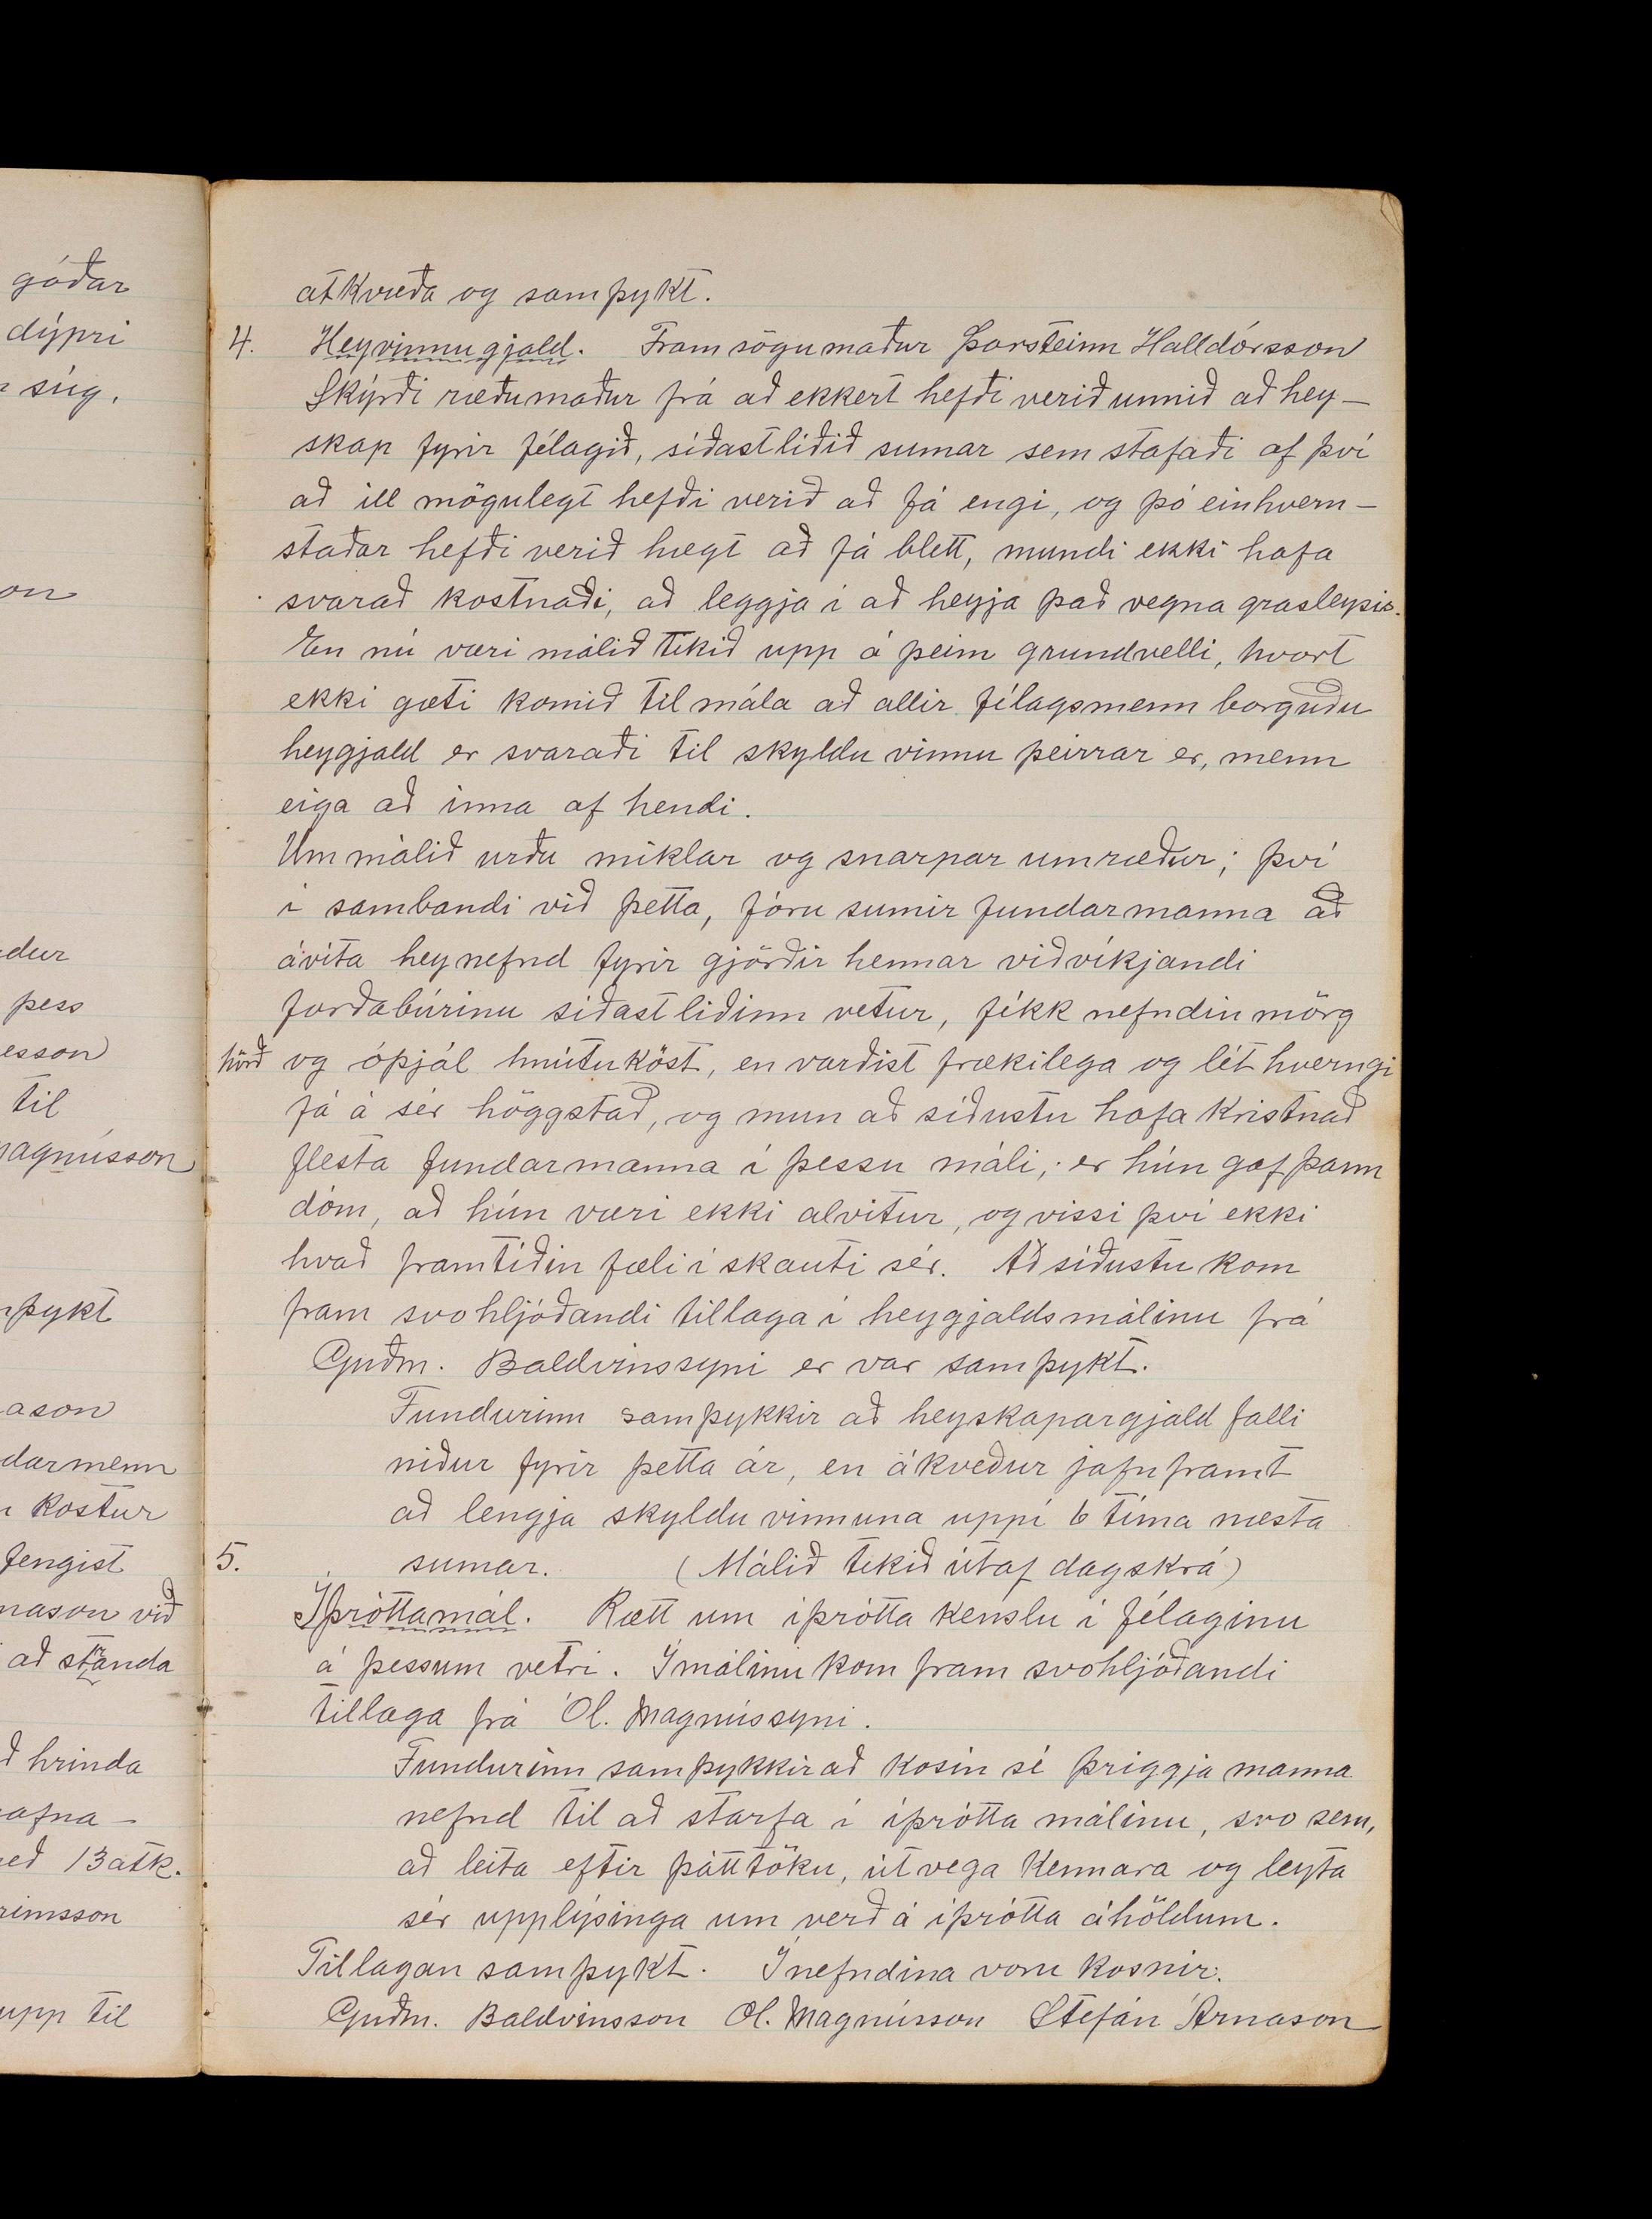 góðar
dýpri
síg.
on
dur
þess
esson
til
Magnússon
þykt
ason
darmenn
kostur
fengist
nason við
að standa
hrinda
afna-
með 13 atk.
rímsson
upp til
atkvæða og samþykt.
4. Heyvinnugjald. Framsögumaður Þorsteinn Halldórsson
Skýrði ræðumaður frá að ekkert hefði verið unnið að hey-
skap fyrir félagið, síðastliðið sumar sem stafaði af því
að ill mögulegt hefði verið að fá engi, og þó einhvern-
staðar hefði verið hægt að fá blett, mundi ekki hafa
svarað kostnaði, að leggja í að heyja það vegna grasleysis.
En nú væri málið tekið upp á þeim grundvelli, hvort
ekki gæti komið til mála að allir félagsmenn borguðu
heygjald er svaraði til skyldu vinnu þeirrar er, menn
eiga að inna af hendi.
Um málið urðu miklar og snarpar umræður; því
í sambandi við þetta, fóru sumir fundarmanna að
ávíta heynefnd fyrir gjörðir hennar viðvíkjandi
forðabúrinu síðastliðinn vetur, fékk nefndin mörg
hörð og óþjál hnútuköst, en varðist frækilega og lét hverngi
fá á sér höggstað, og mun að síðustu hafa kristnað
flesta fundarmanna í þessu máli, er hún gaf þann
dóm, að hún væri ekki alvitur, og vissi því ekki
hvað framtíðin fæli í skauti sér. Að síðustu kom
fram svohljóðandi tillaga í heygjaldsmálinu frá
Guðm. Baldvinssyni er var samþykt.
Fundurinn samþykkir að heyskapargjald falli
niður fyrir þetta ár, en ákveður jafnframt
að lengja skyldu vinnuna uppí 6 tíma næsta
5. sumar. (Málið tekið útaf dagskrá)
Íþróttamál. Rætt um íþrótta kenslu í félaginu
á þessum vetri. Í málinu kom fram svohljóðandi
tillaga frá Ól. Magnússyni.
Fundurinn samþykkir að kosin sé þriggja manna
nefnd til að starfa í íþrótta málinu, svo sem,
að leita eftir þátttöku, útvega kennara og leyta
sér upplýsinga um verð á íþrótta áhöldum.
Tillagan samþykt. Í nefndina voru kosnir.
Guðm. Baldvinsson Ol. Magnússon Stefán Árnason